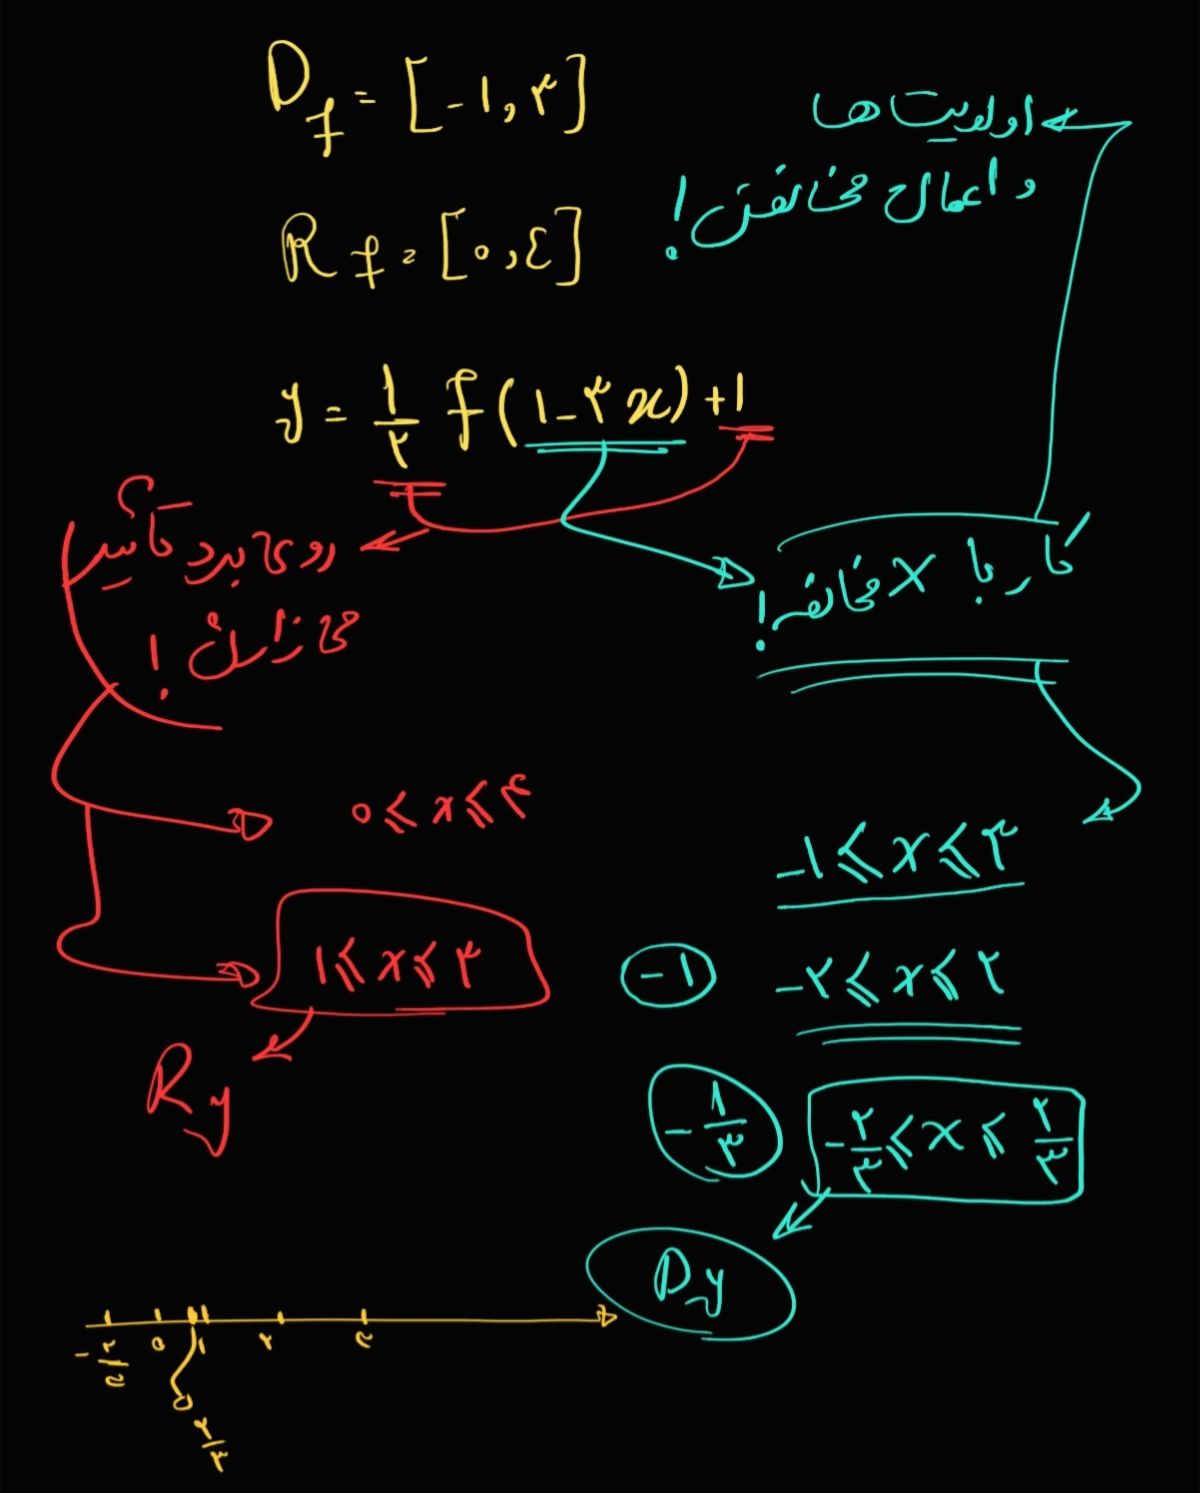 D_f = [-۱, ۳]
R_f = [۰, ٤]
اولویت ها
و اعمال مخالفش!
y = ۱/۲ f(۱-۳x)+۱
روی برد تأثیر
می ذارن!
کار با x مخالفه!
۰ ≤ x ≤ ۴
۱ ≤ x ≤ ۳
R_y
-۱ ≤ x ≤ ۳
-۱ -۲ ≤ x ≤ ۲
-۱/۳ -۲/۳ ≤ x ≤ ۲/۳
D_y
-۲/۳ ۰ ۱ ۲ ۳
۲/۳